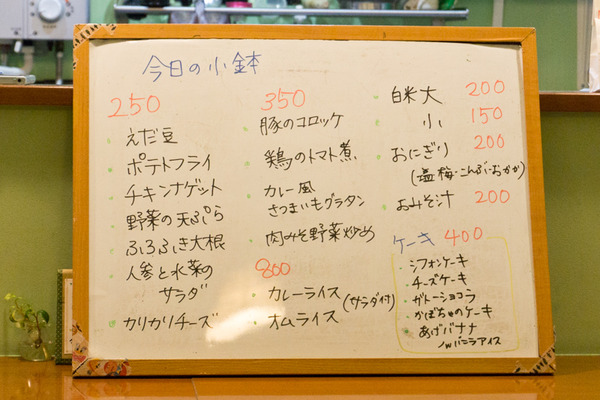 今日の小鉢
250
・えだ豆
・ポテトフライ
・チキンナゲット
・野菜の天ぷら
・ふろふき大根
・人参と水菜の
サラダ
・カリカリチーズ
350
・豚のコロッケ
・鶏のトマト煮
・カレー風
さつまいもグラタン
・肉みそ野菜炒め
800
・カレーライス(サラダ付)
・オムライス
・白米大 200
・小 150
・おにぎり 200
(塩・梅・こんぶ・おかか)
・おみそ汁 200
ケーキ 400
・シフォンケーキ
・チーズケーキ
・ガトーショコラ
・かぼちゃのケーキ
・あげバナナ
/wバニラアイス